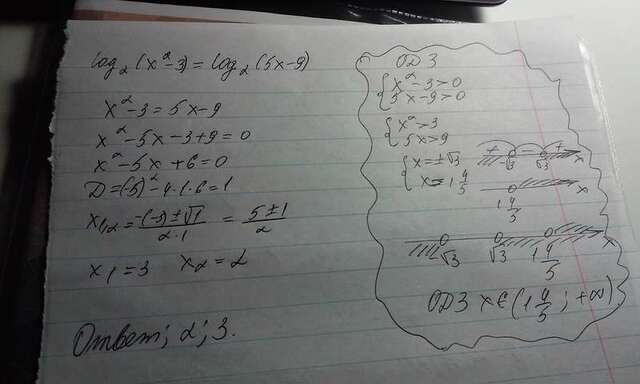 log₂(x²-3) = log₂(5x-9)
x²-3 = 5x-9
x²-5x-3+9=0
x²-5x+6=0
D=(-5)²-4·1·6=1
x₁,₂ = (-(-5)±√1)/(2·1) = (5±1)/2
x₁=3 x₂=2
Ответ; 2; 3.
ОДЗ
{x²-3>0
5x-9>0
{x²>3
5x>9
{x=±√3
x=1 4/5
+ - + x
-√3 √3
x
1 4/5
-√3 √3 1 4/5 x
ОДЗ x∈(1 4/5; +∞)